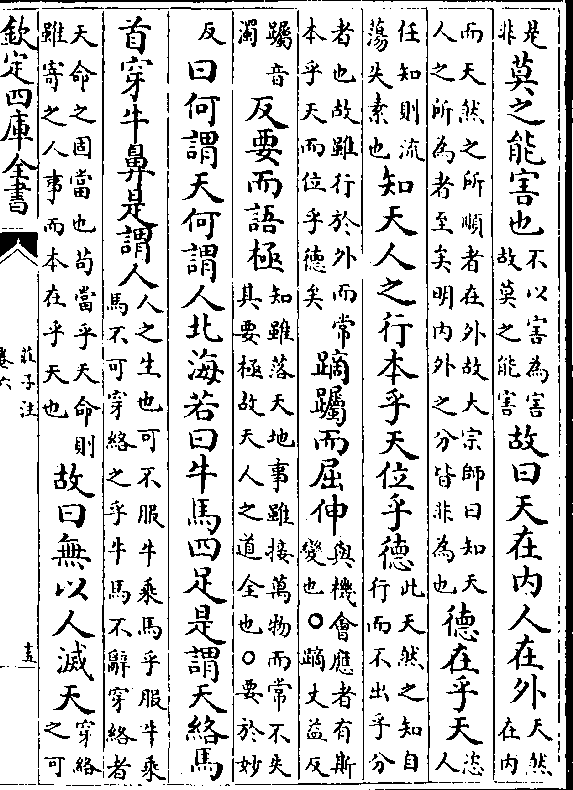 是非莫之能害也不以害為害故莫之能害故曰天在内人在外天然在内
而天然之所順者在外故大宗師曰知天人之所為者至矣明内外之分皆非為也德在乎天恣人
任知則流蕩失素也知天人之行本乎天位乎德此天然之知自行而不出乎分
者也故雖行於外而常本乎天而位乎德矣蹢躅而屈伸與機會應者有斯變也○蹢丈益反
躅音濁反要而語極知雖落天地事雖接萬物而常不失其要極故天人之道全也○要於妙
反曰何謂天何謂人北海若曰牛馬四足是謂天絡馬
首穿牛鼻是謂人人之生也可不服牛乘馬乎服牛乘馬不可穿絡之乎牛馬不辭穿絡者
天命之固當也苟當乎天命則雖寄之人事而本在乎天也故曰無以人滅天穿絡之可
欽定四庫全書
莊子注
卷六
十五